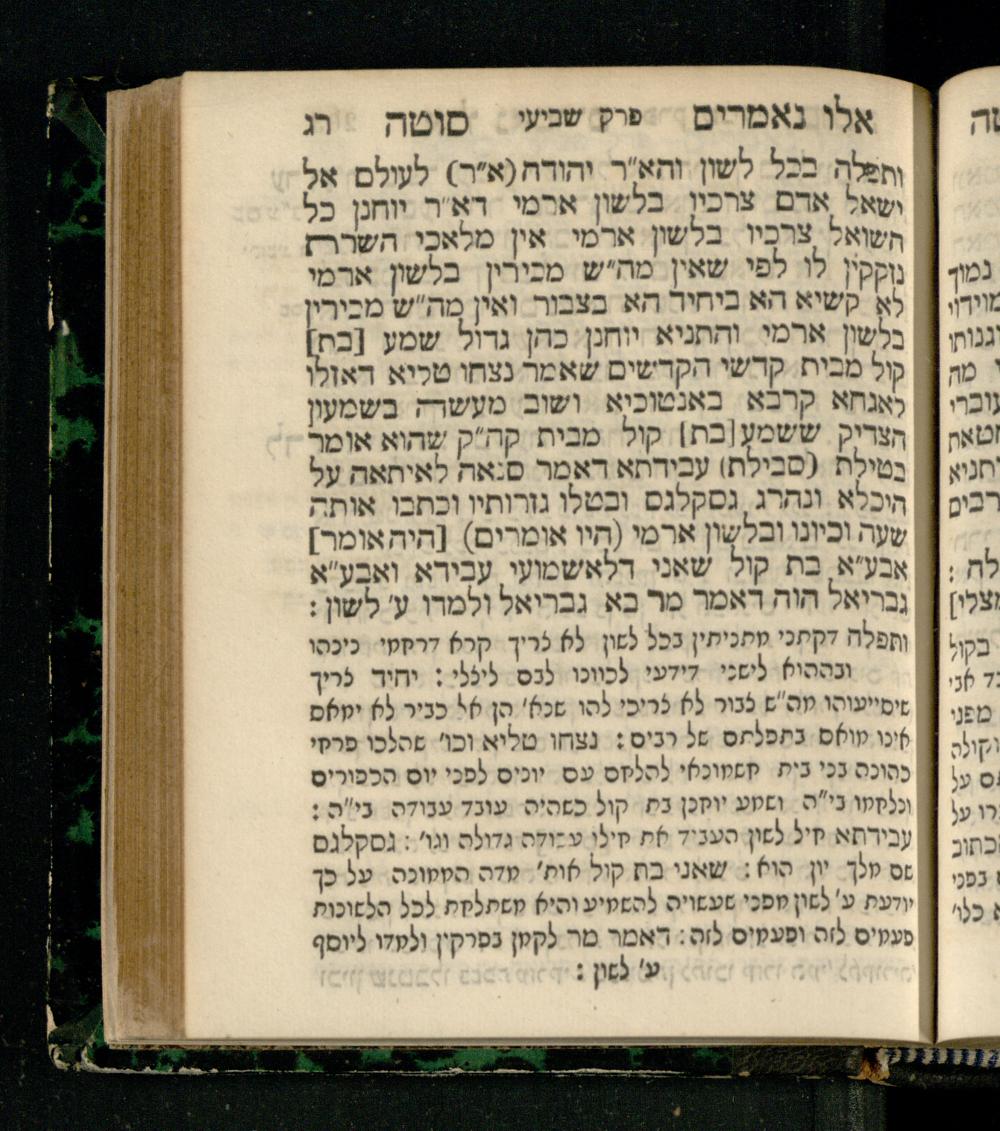 אלו נאמרים פרק שביעי סוטה רג
ותפלה בכל לשון והא"ר יהודה (א"ר) לעולם אל
ישאל אדם צרכיו בלשון ארמי דא"ר יוחנן כל
השואל צרכיו בלשון ארמי אין מלאכי השרת
נזקקין לו לפי שאין מה"ש מכירין בלשון ארמי
לא קשיא הא ביחיד הא בצבור ואין מה"ש מכירין
בלשון ארמי והתניא יוחנן כהן גדול שמע [בת]
קול מבית קדשי הקדשים שאמר נצחו טליא דאזלו
לאגחא קרבא באנטוכיא ושוב מעשה בשמעון
הצדיק ששמע [בת] קול מבית קה"ק שהוא אומר
בטילת (סבילת) עבידתא דאמר סנאה לאיתאה על
היכלא ונהרג גסקלגם ובטלו גזרותיו וכתבו אותה
שעה וכיונו ובלשון ארמי (היו אומרים) [היה אומר]
אבע"א בת קול שאני דלאשמועי עבידא ואבע"א
גבריאל הוה דאמר מר בא גבריאל ולמדו ע' לשון :
ותפלה דקתני מתניתין בכל לשון לא צריך קרא דרחמי נינהו
ובההוא לישני דידעי לכוונו לבם ליצלי : יחיד צריך
שיסייעוהו מה"ש צבור לא צריכי להו שנא' הן אל כביר לא ימאס
אינו מואס בתפלתם של רבים : נצחו טליא וכו' שהלכו פרחי
כהונה בני בית חשמונאי להלחם עם יונים לפני יום הכפורים
ונלחמו בי"ה ושמע יוחנן בת קול כשהיה עובד עבודה בי"ה :
עבידתא חיל לשון העביד את חילו עבודה גדולה וגו' : גסקלגם
שם מלך יון הוא : שאני בת קול אות' מדה הממונה על כך
יודעת ע' לשון מפני שעשויה להשמיע והיא משתלחת לכל הלשונות
פעמים לזה ופעמים לזה : דאמר מר לקמן בפרקין ולמדו ליוסף
ע' לשון :